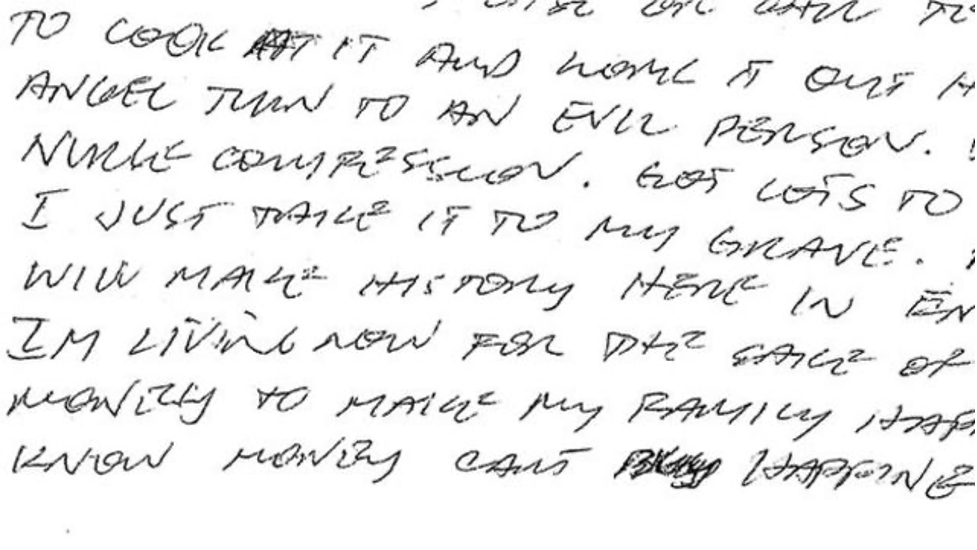 TO LOOK AT IT AND WORK IT OUT H
ANGEL TURN TO AN EVIL PERSON.
NURSE CONFESSION. GOT LOTS TO
I JUST TAKE IT TO MY GRAVE.
WILL MAKE HISTORY HERE IN EN
IM LIVING NOW FOR THE SAKE OF
MONEY TO MAKE MY FAMILY HAP
KNOW MONEY CANT BUY HAPPINE